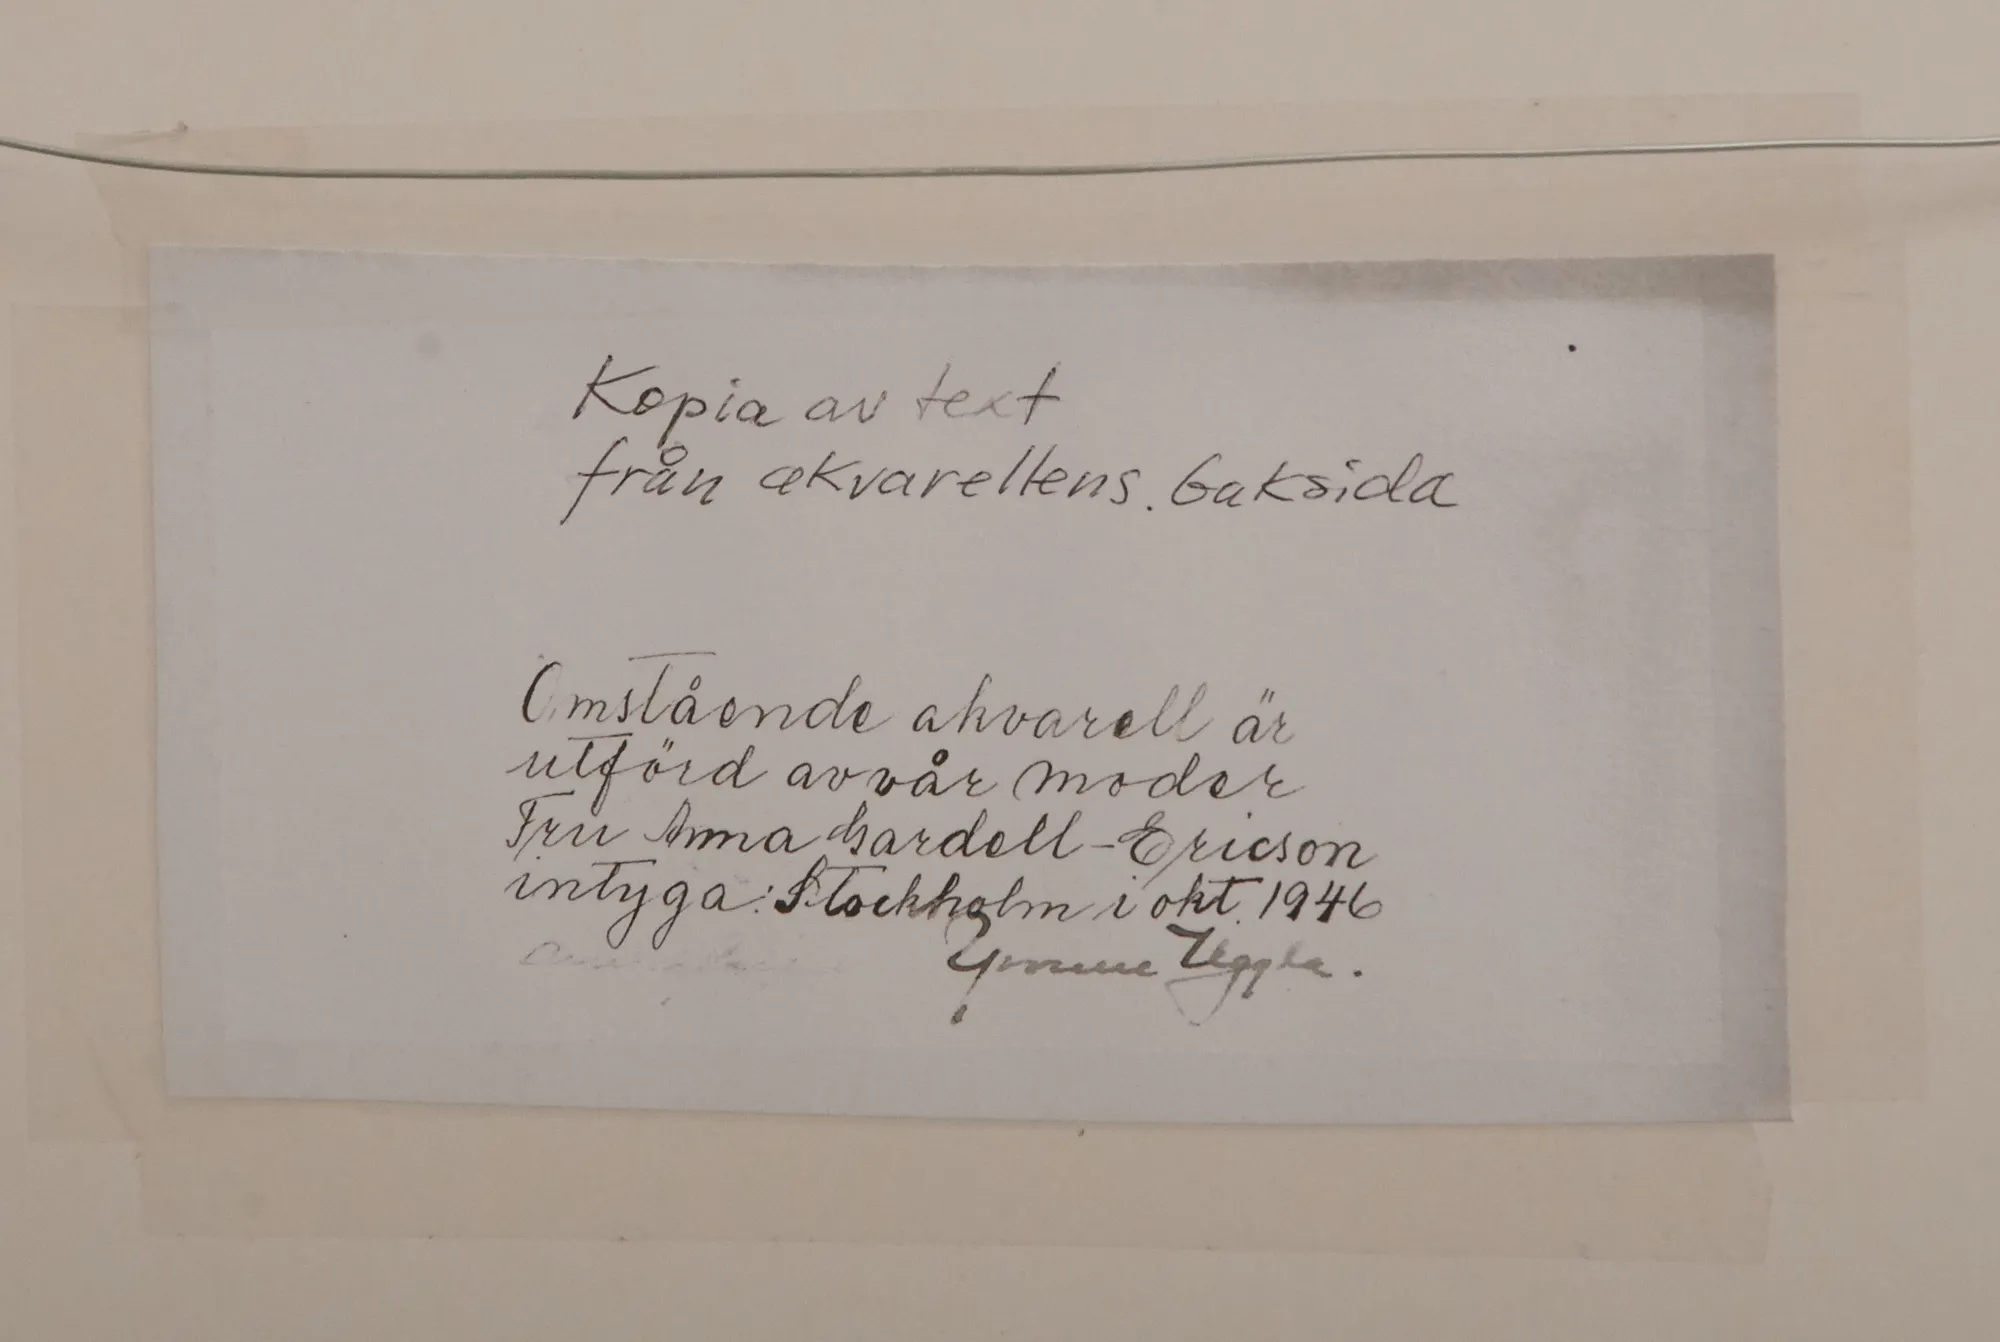 Kopia av text
från akvarellens. baksida
Omstående akvarell är
utförd av vår moder
Fru Anna Gardell-Ericson
intyga: Stockholm i okt. 1946
Yvonne Uggla.